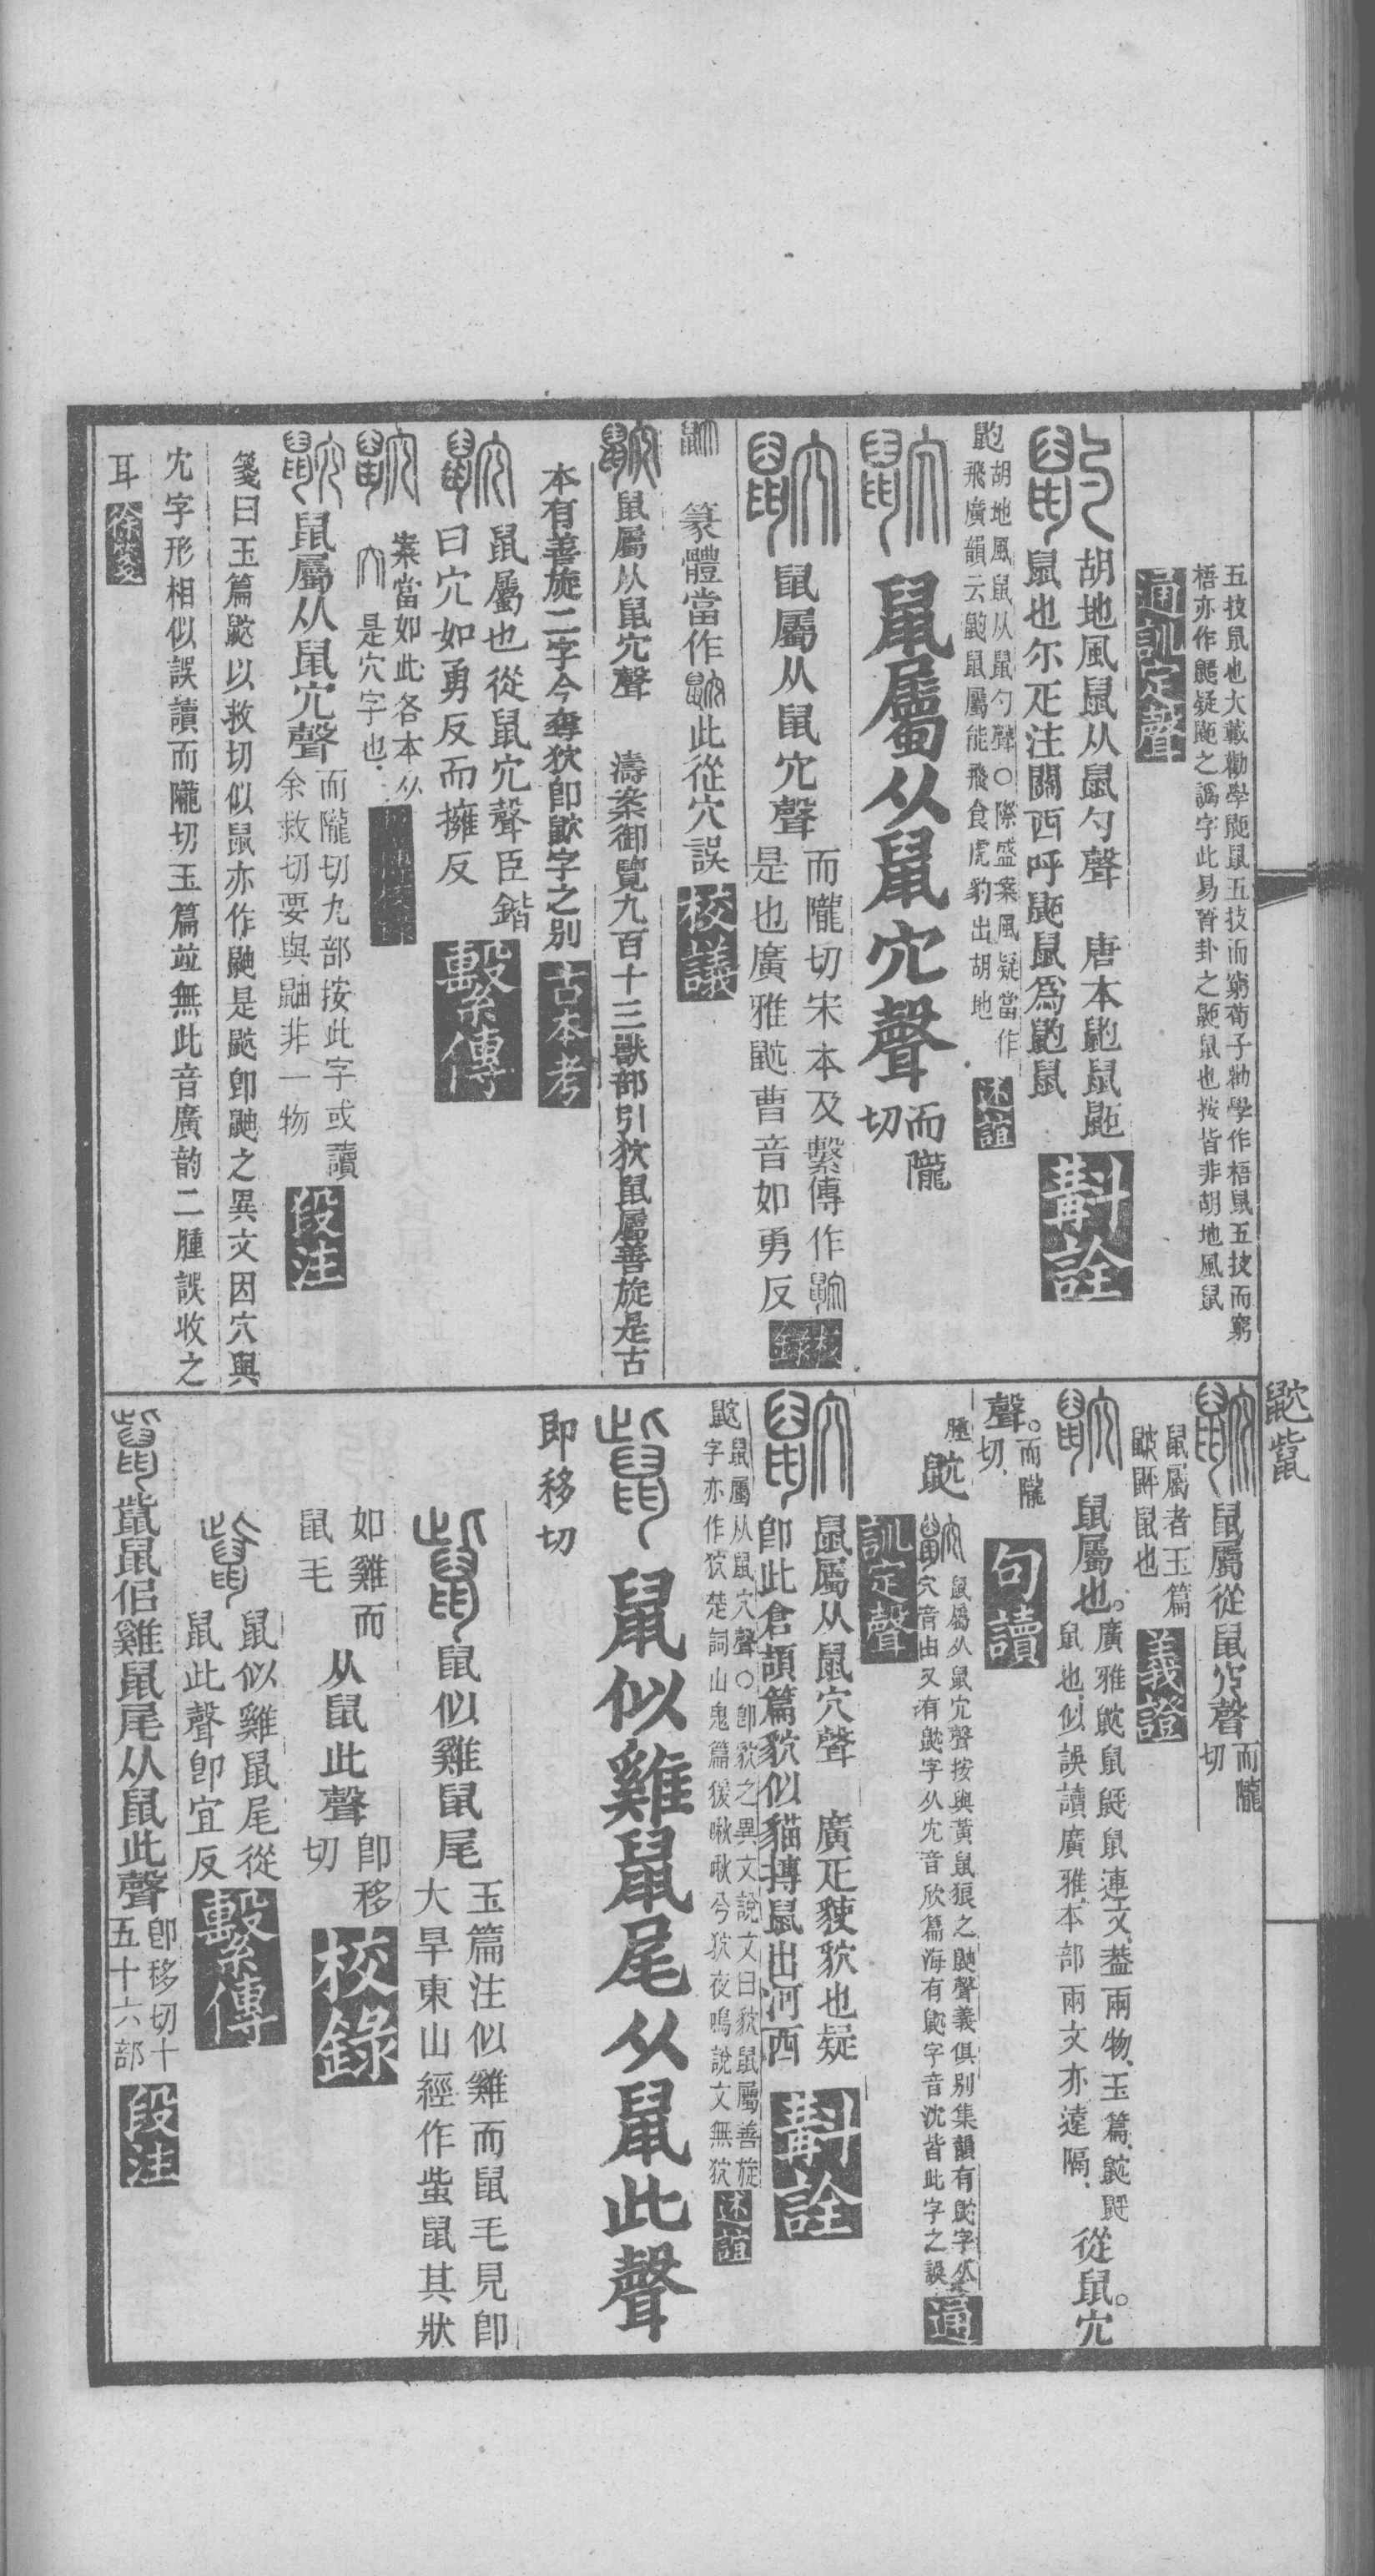 五技鼠也大戴勸學鼫鼠五技而窮荀子勸學作梧鼠五技而窮
梧亦作鼯疑鼫之譌字此易晉卦之鼫鼠也按皆非胡地風鼠
通訓定聲
胡地風鼠从鼠勺聲　唐本鼩鼠鼫
鼠也尒疋注關西呼鼫鼠爲鼩鼠
斠詮
胡地風鼠从鼠勺聲○際盛案風疑當作
飛廣韻云鼩鼠屬能飛食虎豹出胡地
述誼
鼠屬从鼠宂聲
而隴
切
鼠屬从鼠宂聲
而隴切宋本及繫傳作
是也廣雅鼧曹音如勇反
校錄
篆體當作
此從穴誤
校議
鼠屬从鼠宂聲　濤案御覽九百十三獸部引狖鼠屬善旋是古
本有善旋二字今奪狖卽鼣字之別
古本考
鼠屬也從鼠宂聲臣鍇
曰宂如勇反而擁反
繫傳
案當如此各本从
是穴字也
鼠屬从鼠宂聲
而隴切九部按此字或讀
余救切要與鼬非一物
段注
箋曰玉篇鼣以救切似鼠亦作鼬是鼣卽鼬之異文因穴與
宂字形相似誤讀而隴切玉篇竝無此音廣韵二腫誤收之
耳
徐箋
鼠屬從鼠宂聲
而隴
切
鼠屬者玉篇
鼠也
義證
鼠屬也。
廣雅鼣鼠鼮鼠連文葢兩物玉篇
鼠也似誤讀廣雅本部兩文亦遠隔
從鼠。宂
聲。
而隴
切
句讀
腫
鼠屬从鼠宂聲按與黃鼠狼之鼬聲義俱別集韻有鼣字从
穴音由又有字从冘音欣篇海有字音沈皆此字之誤
通
訓定聲
鼠屬从鼠穴聲　廣疋貗狖也疑
卽此倉頡篇狖似貓搏鼠出河西
斠詮
鼠屬从鼠穴聲○卽狖之異文說文曰狖鼠屬善旋
字亦作狖楚詞山鬼篇猨啾啾兮狖夜鳴說文無狖
述誼
鼠似雞鼠尾从鼠此聲
卽移切
鼠似雞鼠尾
玉篇注似雞而鼠毛見卽
大旱東山經作蚩鼠其狀
如雞而
鼠毛
从鼠此聲
卽移
切
校錄
鼠似雞鼠尾從
鼠此聲卽宜反
繫傳
鼠侣雞鼠尾从鼠此聲
卽移切十
五十六部
段注